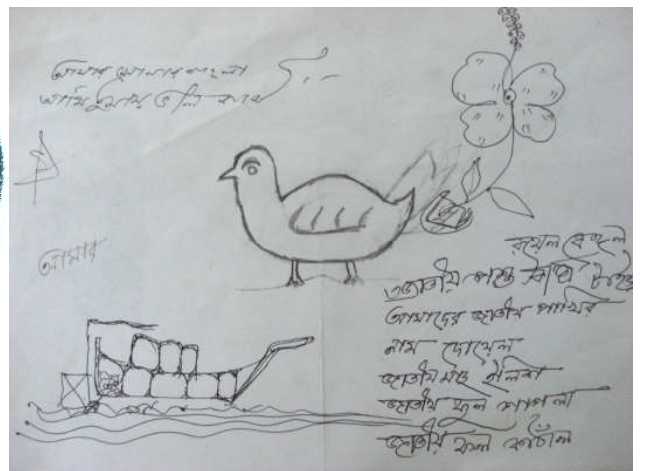 আমার সোনার বাংলা
আমি তোমায় ভালবাসি
আমার
রয়েল বেঙ্গল
জাতীয় পশু
আমাদের জাতীয় পাখির
নাম দোয়েল
জাতীয় মাছ ইলিশ
জাতীয় ফুল শাপলা
জাতীয় ফল কাঁঠাল